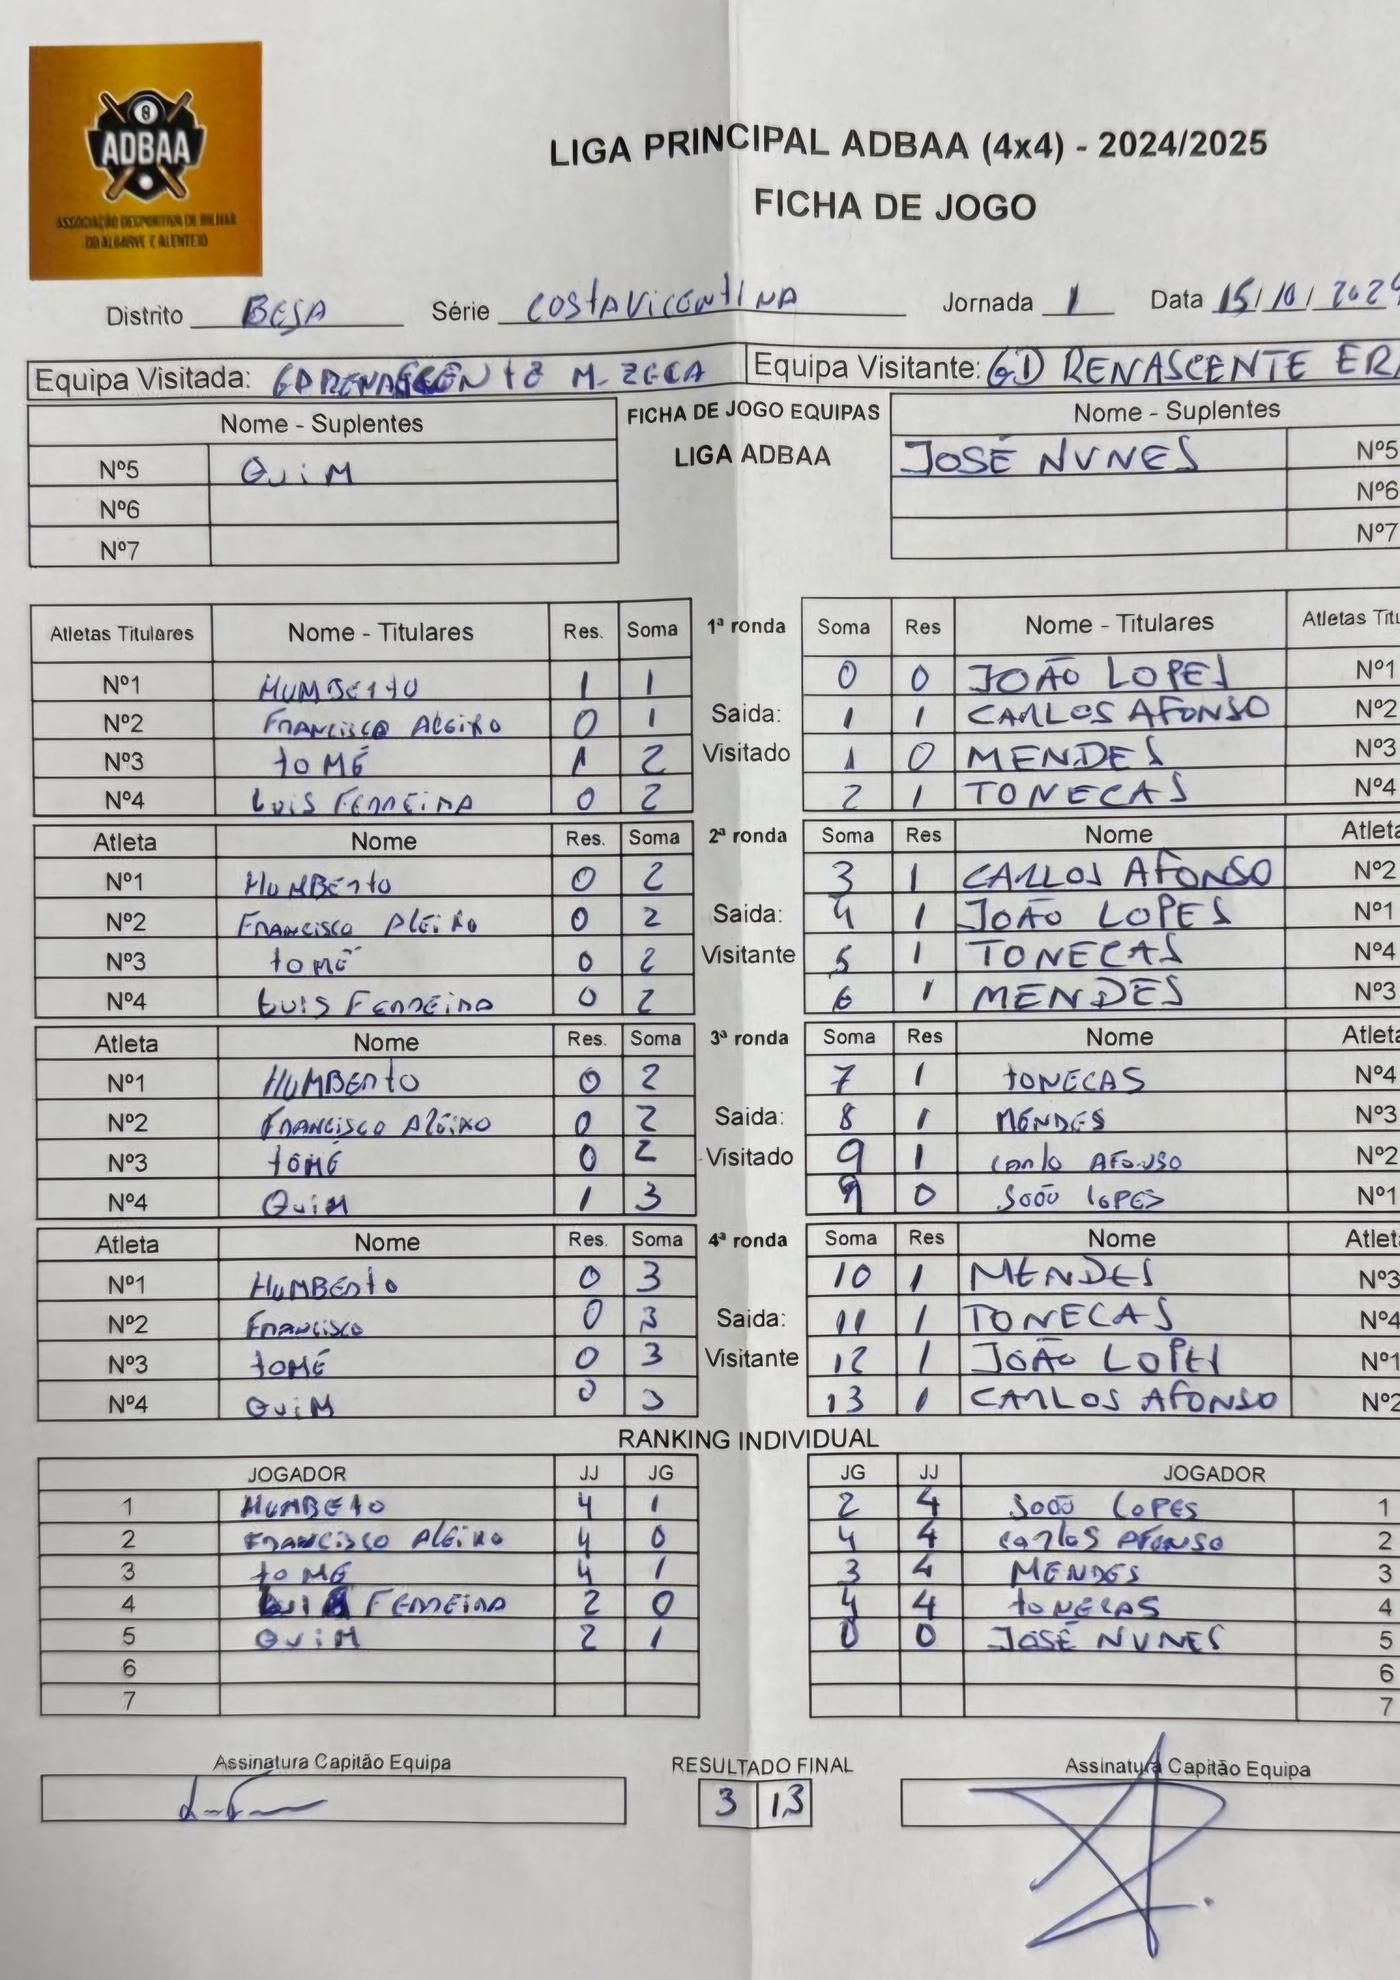 ADBAA
ASSOCIAÇÃO DESPORTIVA DE BILHAR
DO ALGARVE E ALENTEJO
LIGA PRINCIPAL ADBAA (4x4) - 2024/2025
FICHA DE JOGO
Distrito BEJA Série COSTA VICENTINA Jornada 1 Data 15/10/2024
Equipa Visitada: GD RENASCENTE M. ZECA Equipa Visitante: GD RENASCENTE ER
Nome - Suplentes FICHA DE JOGO EQUIPAS Nome - Suplentes
LIGA ADBAA
Nº5 QUIM JOSÉ NUNES Nº5
Nº6 Nº6
Nº7 Nº7
Atletas Titulares Nome - Titulares Res. Soma 1ª ronda Soma Res Nome - Titulares Atletas Titu
Nº1 HUMBERTO 1 1 0 0 JOÃO LOPES Nº1
Nº2 FRANCISCO ALEIXO 0 1 Saida: 1 1 CARLOS AFONSO Nº2
Nº3 TOMÉ 1 2 Visitado 1 0 MENDES Nº3
Nº4 LUIS FERREIRA 0 2 2 1 TONECAS Nº4
Atleta Nome Res. Soma 2ª ronda Soma Res Nome Atleta
Nº1 HUMBERTO 0 2 3 1 CARLOS AFONSO Nº2
Nº2 FRANCISCO ALEIXO 0 2 Saida: 4 1 JOÃO LOPES Nº1
Nº3 TOMÉ 0 2 Visitante 5 1 TONECAS Nº4
Nº4 LUIS FERREIRA 0 2 6 1 MENDES Nº3
Atleta Nome Res. Soma 3ª ronda Soma Res Nome Atleta
Nº1 HUMBERTO 0 2 7 1 TONECAS Nº4
Nº2 FRANCISCO ALEIXO 0 2 Saida: 8 1 MENDES Nº3
Nº3 TOMÉ 0 2 Visitado 9 1 CARLO AFONSO Nº2
Nº4 QUIM 1 3 9 0 JOÃO LOPES Nº1
Atleta Nome Res. Soma 4ª ronda Soma Res Nome Atlet
Nº1 HUMBERTO 0 3 10 1 MENDES Nº3
Nº2 FRANCISCO 0 3 Saida: 11 1 TONECAS Nº4
Nº3 TOMÉ 0 3 Visitante 12 1 JOÃO LOPES Nº1
Nº4 QUIM 0 3 13 1 CARLOS AFONSO Nº2
RANKING INDIVIDUAL
JOGADOR JJ JG JG JJ JOGADOR
1 HUMBETO 4 1 2 4 JOÃO LOPES 1
2 FRANCISCO ALEIXO 4 0 4 4 CARLOS AFONSO 2
3 TOMÉ 4 1 3 4 MENDES 3
4 LUIS FERREIRA 2 0 4 4 TONECAS 4
5 QUIM 2 1 0 0 JOSÉ NUNES 5
6 6
7 7
Assinatura Capitão Equipa RESULTADO FINAL Assinatura Capitão Equipa
3 13